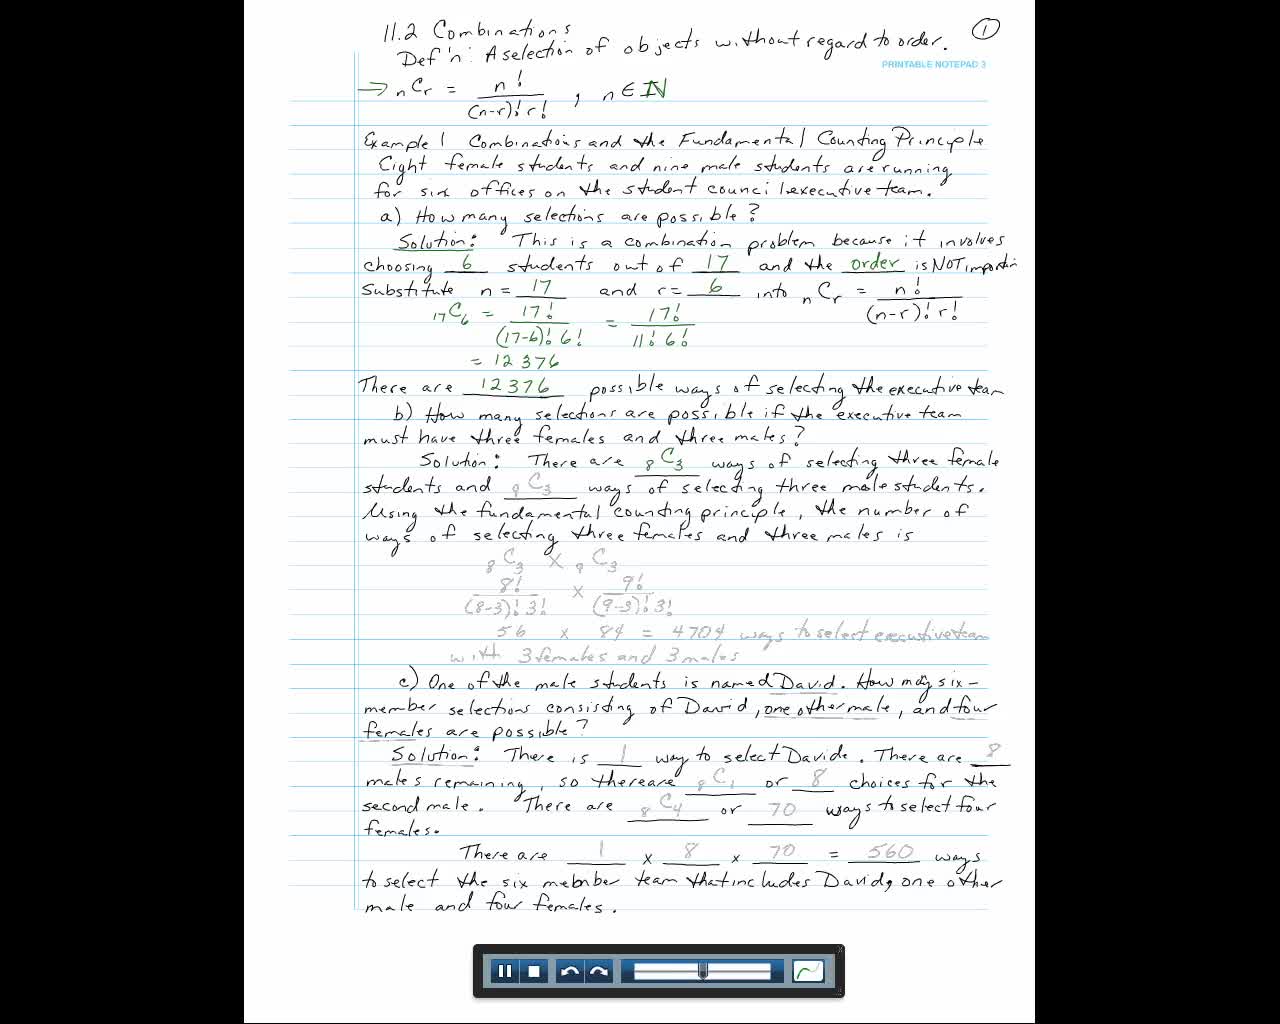 11.2 Combinations
①
Def'n: A selection of objects without regard to order.
PRINTABLE NOTEPAD 3
→ nCr = n! / (n-r)! r! , n ∈ ℕ
Example 1 Combinations and the Fundamental Counting Principle
Eight female students and nine male students are running
for six offices on the student council executive team.
a) How many selections are possible?
Solution: This is a combination problem because it involves
choosing 6 students out of 17 and the order is NOT importin
Substitute n = 17 and r = 6 into nCr = n! / (n-r)! r!
17C6 = 17! / (17-6)! 6! = 17! / 11! 6!
= 12376
There are 12376 possible ways of selecting the executive team
b) How many selections are possible if the executive team
must have three females and three males?
Solution: There are 8C3 ways of selecting three female
students and 9C3 ways of selecting three male students.
Using the fundamental counting principle, the number of
ways of selecting three females and three males is
8C3 × 9C3
8! / (8-3)! 3! × 9! / (9-3)! 3!
56 × 84 = 4704 ways to select executive team
with 3 females and 3 males
c) One of the male students is named David. How may six-
member selections consisting of David, one other male, and four
females are possible?
Solution: There is 1 way to select Davide. There are 8
males remaining, so there are 8C1 or 8 choices for the
second male. There are 8C4 or 70 ways to select four
females.
There are 1 × 8 × 70 = 560 ways
to select the six member team that includes David, one other
male and four females.